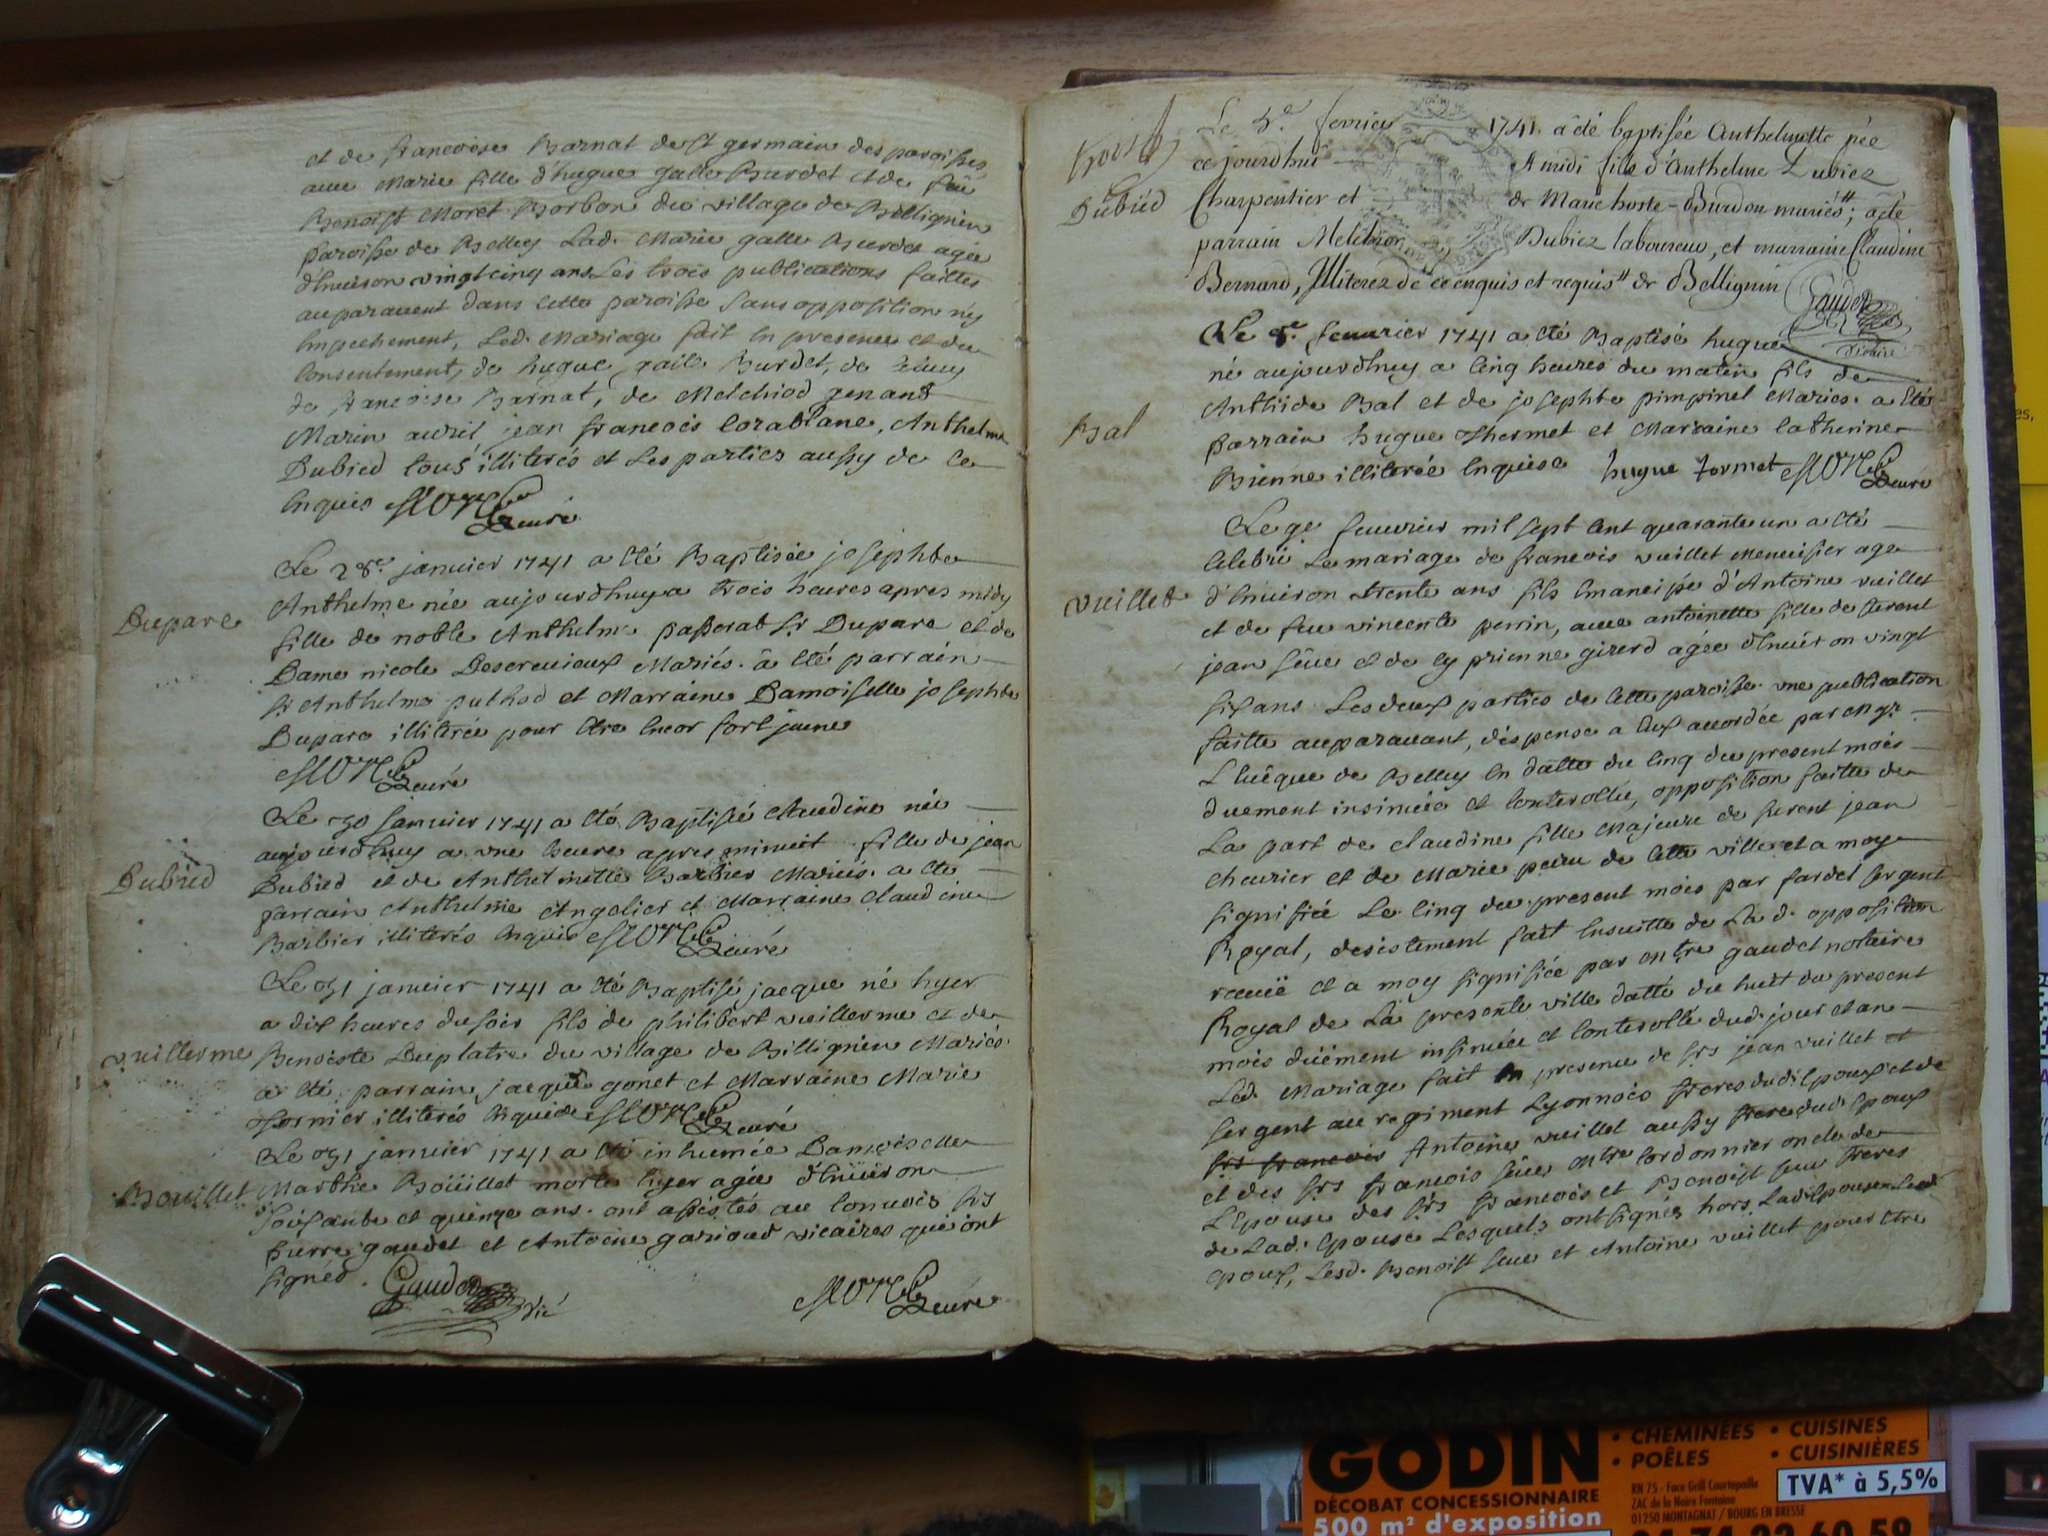 et de francoise Barnat de st germain des paroisses
auec Marie fille d'hugue galle Burdet et de feüe
Benoist Moret Borbon du village de Billignieu
paroisse de Belley Lad. Marie galle Burdet agée
d'enuiron vingt cinq ans. Les trois publications faittes
auparauent dans cette paroisse sans opposition ny
Empechement, Led. Mariage fait En presence et du
Consentement, de hugue galle Burdet, de
de francoise Barnat, de Melchiod genand
Marin auril, jean francois Corablane, Anthelme
Dubied tous illiterés et Les parties aussy de ce
Enquis Morel Curé
Dupare
Le 28e. janvier 1741 a Eté Baptisée josephte
Anthelme née aujourdhuy a trois heures apres midy
fille de noble Anthelme passerat sr Dupare et de
Dame nicole Descreuieux Mariés. à Eté parrain
sr Anthelme puthod et Marraine Damoiselle josephte
Dupare illiterée pour Etre Encor fort jeune
Morel Curé
Dubied
Le 30 janvier 1741 a Eté Baptisée Claudine née
aujourdhuy a vne heure apres minuit fille de jean
Dubied et de Anthelmette Barbier Mariés. a Eté
parrain Anthelme Angelier et Marraine Claudine
Barbier illiterés Enquis Morel Curé
vuillerme
Le 31 janvier 1741 a Eté Baptisé jacque né hyer
a dix heures du soir fils de philibert vuillerme et de
Benoiste Duplatre du village de Billignieu Mariés.
a Eté parrain jacque gonet et Marraine Marie
fornier illiterés Enquis Morel Curé
Bouillet
Le 31 janvier 1741 a Eté inhumée Damoiselle
Marthe Boüillet morte hyer agée d'Enuiron
soixante et quinze ans. ont assistés au Conuoés srs
pierre gaudet et Antoine garioud vicaires qui ont
signés. Gaudet vic Morel Curé
Dubied
Le 5e fevrier 1741 a été baptisée Anthelmette née
ce jourdhui A midi fils d'Anthelme Dubiez
Charpentier et de Marie hoste-Burdon mariés; a été
parrain Melchior Dubiez laboureur, et marraine Claudine
Bernard, Illiterez de ce enquis et requis de Bellignin Gaudet
vicaire
Bal
Le 8e. feuurier 1741 a Eté Baptisé hugue
né aujourdhuy a Cinq heures du matin fils de
Anthide Bal et de josephte pimpinel Mariés. a Eté
parrain hugue thermet et Marraine Catherine
Brienne illiterée Enquise hugue termet Morel Curé
vuillet
Le 9e feuurier mil sept Cent quarante un a Eté
Celebré Le mariage de francois vuillet Menuisier age
d'Enuiron trente ans fils Emancipé d'Antoine vuillet
et de feu vincente perrin, auec antoinette fille de furent
jean seue et de Cyprienne girerd agée d'Enuiron vingt
six ans Les deux parties de Cette paroisse. vne publication
faitte auparauant, dispense a Eux accordée par Mgr.
L'Euêque de Belley En datte du Cinq du present mois
duement insinuée et Controllée, opposition faitte de
La part de Claudine fille Majeure de furent jean
Cheurier et de Marie de Cette ville et a moy
signifiée Le Cinq du present mois par fardel sergent
Royal, desistement fait Ensuitte de Lad. opposition
et a moy signifiée par Mtre gaudet notaire
Royal de La presente ville datté du huit du present
mois düement insinuée et Controllé dud. jour et an
Led. Mariage fait En presence de srs jean vuillet et
sergent au regiment Lyonnois freres dudit Epoux et de
srs francois Antoine vuillet aussy frere dud. Epoux
et des srs francois seue Mtre Cordonnier oncle de
L'Epouse des srs francois et Benoist seue freres
de Lad. Epouse Lesquels ont signés hors Ladit Epouse Led.
Epoux, Lesd. Benoist seue et Antoine vuillet pour Etre
GODIN
DÉCOBAT CONCESSIONNAIRE
500 m² d'exposition
• CHEMINÉES • CUISINES
• POÊLES • CUISINIÈRES
RN 75 - Face Grill Courtepaille
ZAC de la Noire Fontaine
01250 MONTAGNAT / BOURG EN BRESSE
TVA* à 5,5%